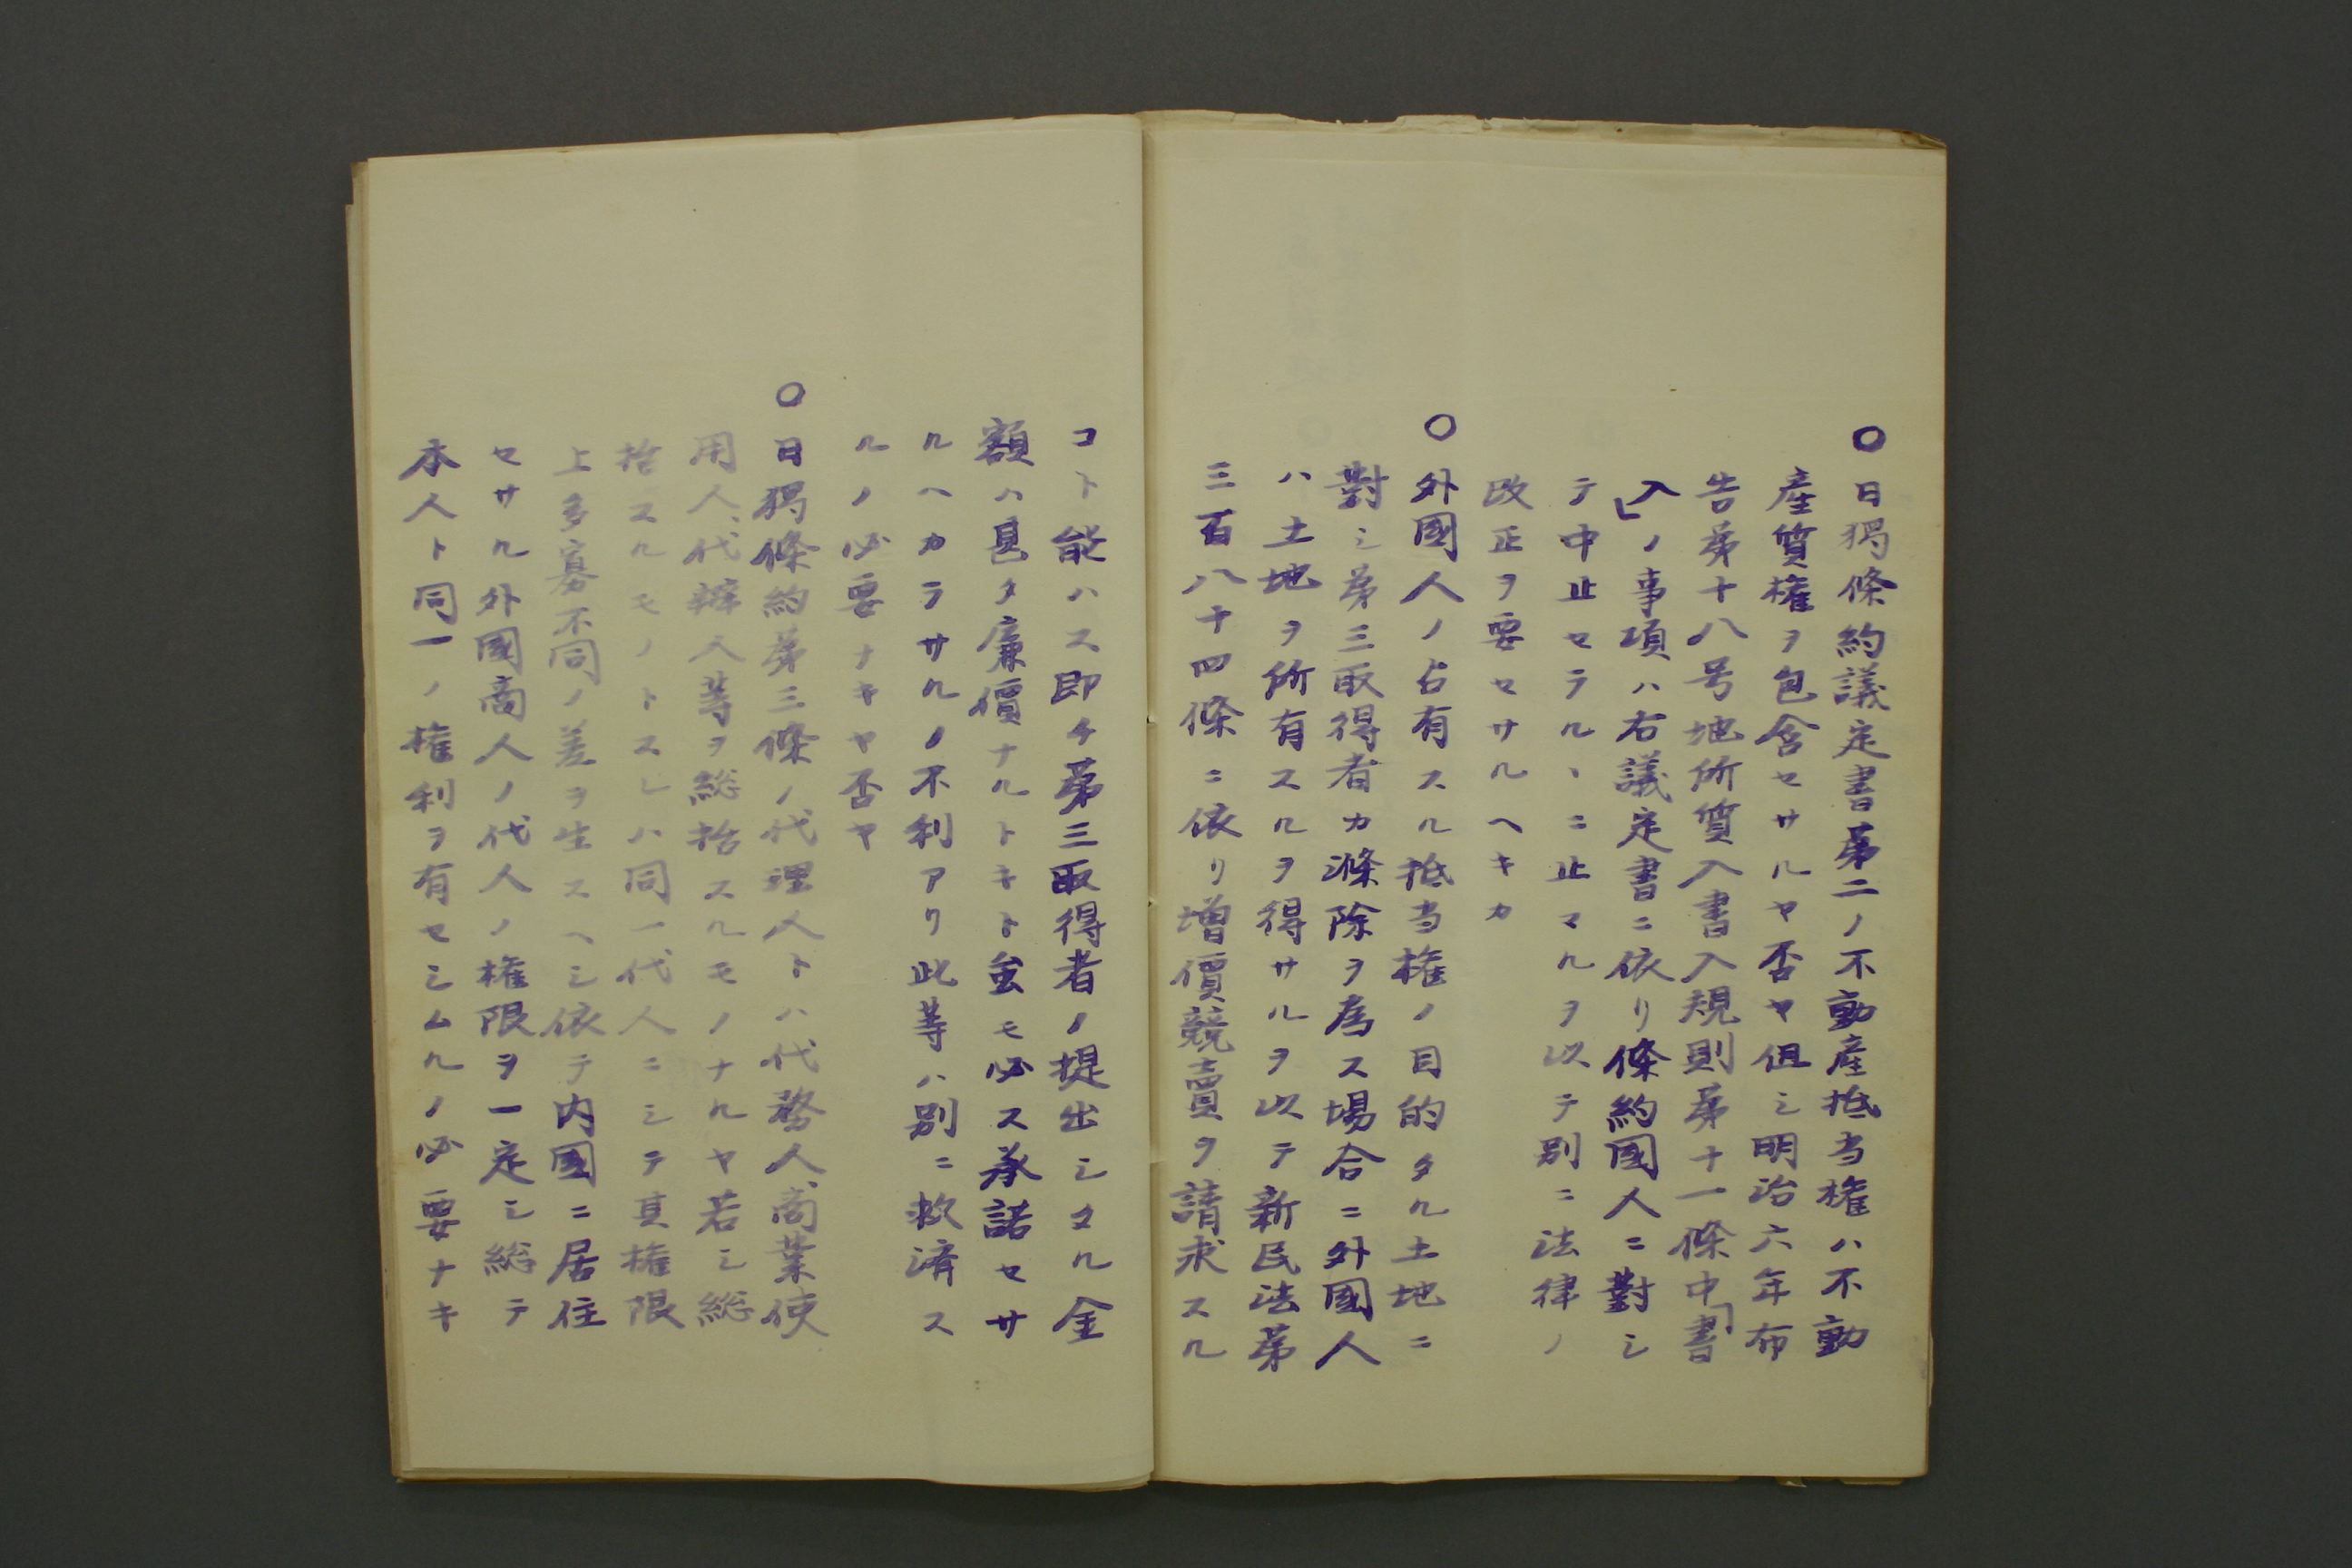 ○日獨條約議定書第二ノ不動產抵当権ハ不動
產質權ヲ包含セサルヤ否ヤ但シ明治六年布
告第十八号地所質入書入規則第十一條中「書
入」ノ事項ハ右議定書ニ依リ條約國人ニ對シ
テ中止セラルヽニ止マルヲ以テ別ニ法律ノ
改正ヲ要セサルヘキカ
○外國人ノ占有スル抵当権ノ目的タル土地ニ
對シ第三取得者カ滌除ヲ爲ス場合ニ外國人
ハ土地ヲ所有スルヲ得サルヲ以テ新民法第
三百八十四條ニ依リ増價競賣ヲ請求スル
コト能ハス即チ第三取得者ノ提出シタル金
額ハ甚タ廉價ナルトキト虽モ必ス承諾セサ
ルヘカラサルノ不利アリ此等ハ別ニ救済ス
ルノ必要ナキヤ否ヤ
○日獨條約第三條ノ代理人トハ代務人、商業使
用人、代辨人等ヲ総括スルモノナルヤ若シ総
括スルモノトスレハ同一代人ニシテ其権限
上多寡不同ノ差ヲ生スヘシ依テ内國ニ居住
セサル外國商人ノ代人ノ権限ヲ一定シ総テ
本人ト同一ノ権利ヲ有セシムルノ必要ナキ